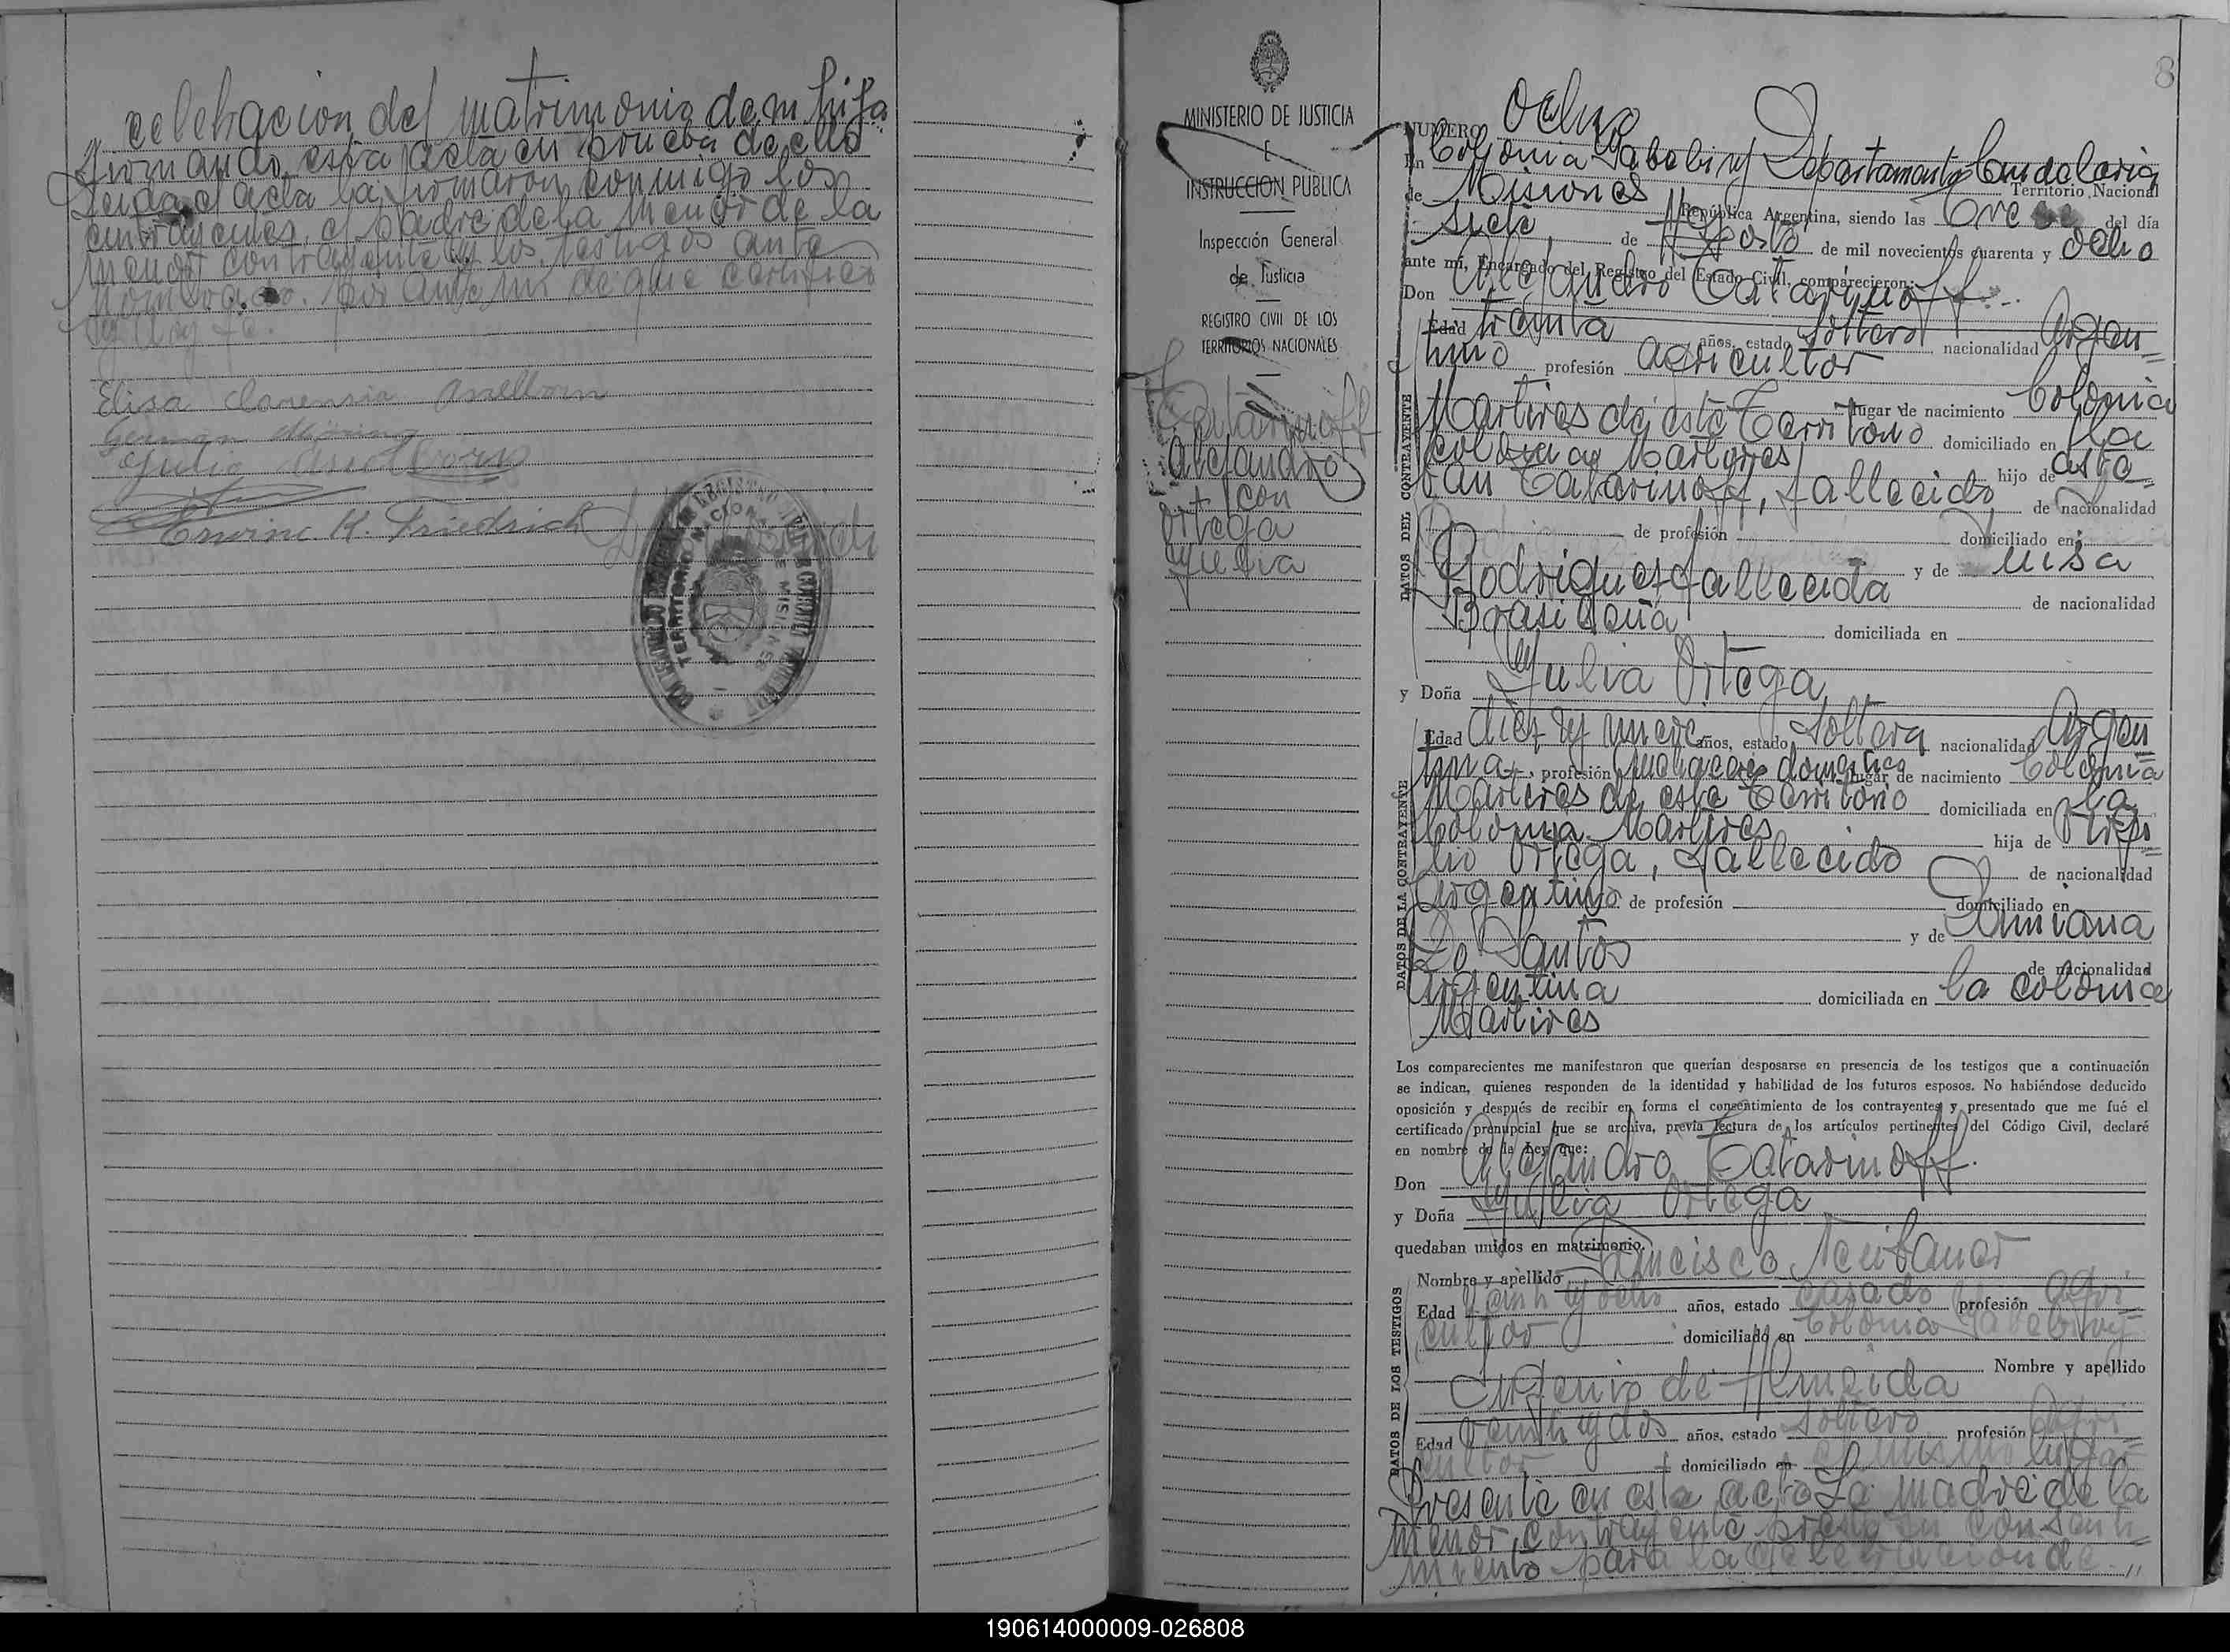 celebracion del matrimonio de m hija
firmando esta acta en prueba de ello
Leida el acta la firmaron conmigo los
contrayentes, el padre de la menor de la
menor contrayente y los testigos ante
nombrados. Por ante mi de que certifico
y doy fe.
Elisa Clarensia Asselborn
German Möring
Julio Asselborn
Erwine K. Friedrich
MINISTERIO DE JUSTICIA
E
INSTRUCCION PUBLICA
Inspección General
de Justicia
REGISTRO CIVIL DE LOS
TERRITORIOS NACIONALES
Catarinoff
Alejandro
con
Ortega
Yulia
8
NUMERO Ocho
En Colonia Yabebiry Departamento Candelaria
Territorio Nacional
de Misiones República Argentina, siendo las Once del día
siete de Agosto de mil novecientos cuarenta y ocho
ante mí, Encargado del Registro del Estado Civil, comparecieron:
Don Alejandro Catarinoff
DATOS DEL CONTRAYENTE
Edad treinta años, estado soltero nacionalidad Argen=
tino profesión agricultor
lugar de nacimiento Colonia
Martires de este Territorio domiciliado en la
colonia Martires hijo de
Catarinoff, fallecido de nacionalidad
de profesión domiciliado en
y de Luisa
Rodrigues fallecida de nacionalidad
Brasileña domiciliada en
y Doña Yulia Ortega
DATOS DE LA CONTRAYENTE
Edad diez y nueve años, estado soltera nacionalidad Argen=
tina profesión quehaceres domesticos lugar de nacimiento Colonia
Martires de este Territorio domiciliada en la
Colonia Martires hija de
Ortega, fallecido de nacionalidad
Argentino de profesión domiciliado en
y de
Do Santos de nacionalidad
Argentina domiciliada en la colonia
Martires
Los comparecientes me manifestaron que querían desposarse en presencia de los testigos que a continuación
se indican, quienes responden de la identidad y habilidad de los futuros esposos. No habiéndose deducido
oposición y después de recibir en forma el consentimiento de los contrayentes y presentado que me fué el
certificado prenupcial que se archiva, previa lectura de los artículos pertinentes del Código Civil, declaré
en nombre de la Ley que:
Don Alejandro Catarinoff.
y Doña Yulia Ortega
quedaban unidos en matrimonio.
DATOS DE LOS TESTIGOS
Nombre y apellido Francisco
Edad veinti y ocho años, estado casado profesión agri
cultor domiciliado en Colonia Yabebiry
Nombre y apellido
Eugenio de Almeida
Edad veinti y dos años, estado soltero profesión Agri
cultor domiciliado en el mismo lugar
Presente en este acto la madre de la
menor contrayente presto su consenti=
miento para la celebracion de
190614000009-026808